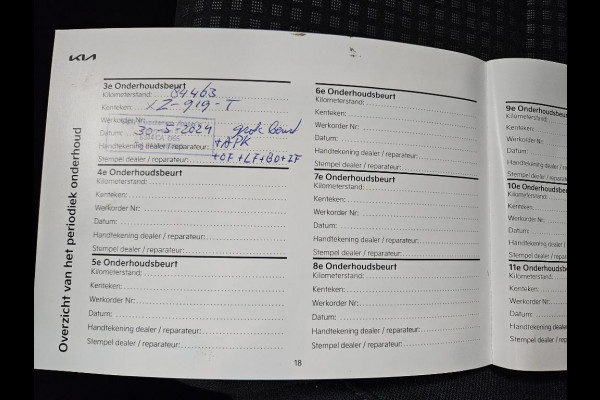 KIA
Overzicht van het periodiek onderhoud
3e Onderhoudsbeurt
Kilometerstand: 84463
Kenteken: XZ-919-T
Werkorder Nr:
Datum: 30-5-2024 grote beurt
Handtekening dealer / reparateur: +APK
Stempel dealer / reparateur: +OF+LF+BO+IF
4e Onderhoudsbeurt
Kilometerstand:
Kenteken:
Werkorder Nr:
Datum:
Handtekening dealer / reparateur:
Stempel dealer / reparateur:
5e Onderhoudsbeurt
Kilometerstand:
Kenteken:
Werkorder Nr:
Datum:
Handtekening dealer / reparateur:
Stempel dealer / reparateur:
6e Onderhoudsbeurt
Kilometerstand:
Kenteken:
Werkorder Nr:
Datum:
Handtekening dealer / reparateur:
Stempel dealer / reparateur:
7e Onderhoudsbeurt
Kilometerstand:
Kenteken:
Werkorder Nr:
Datum:
Handtekening dealer / reparateur:
Stempel dealer / reparateur:
8e Onderhoudsbeurt
Kilometerstand:
Kenteken:
Werkorder Nr:
Datum:
Handtekening dealer / reparateur:
Stempel dealer / reparateur:
18
9e Onderhoudsbeu
Kilometerstand:
Kenteken:
Werkorder Nr:
Datum:
Handtekening dealer /
Stempel dealer / repar
10e Onderhoudsb
Kilometerstand:
Kenteken:
Werkorder Nr:
Datum:
Handtekening dealer
Stempel dealer / rep
11e Onderhouds
Kilometerstand:
Kenteken:
Werkorder Nr:
Datum:
Handtekening deale
Stempel dealer / re